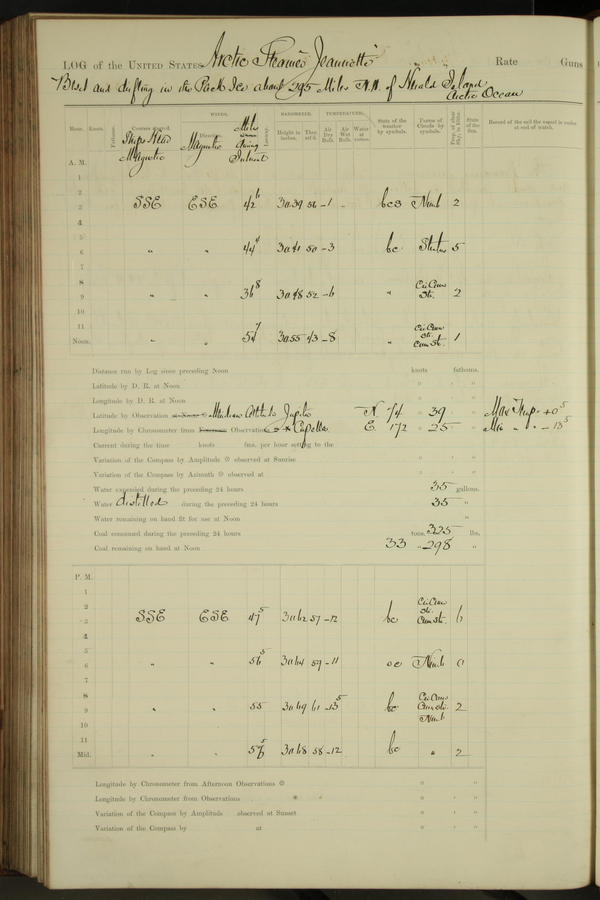 LOG of the UNITED STATES Arctic Steamer Jeannette Rate Guns
Beset and drifting in the Pack Ice about 295 Miles N.W. of Herald Island
Arctic Ocean
WINDS. BAROMETER. TEMPERATURE.
Hour. Knots. Fathoms. Courses steered. Direction Height in inches. Ther. att'd. Air Dry Bulb. Air Wet Bulb. Water at surface. State of the weather by symbols. Forms of Clouds by symbols. State of the Sea. Record of the sail the vessel is under at end of watch.
Ships Head Magnetic Magnetic Miles during Interval
A. M.
1
2
3 SSE ESE 42 6 30.39 56 -1 bcs Nimb 2
4
5
6 " " 44 4 30.41 50 -3 bc Stratus 5
7
8
9 " " 36 8 30.48 52 -6 " Cir Cum Str. 2
10
11
Noon. " " 54 7 30.55 43 -8 " Cir Cum Str. Cum St. 1
Distance run by Log since preceding Noon knots fathoms.
Latitude by D. R. at Noon
Longitude by D. R. at Noon
Latitude by Observation Meridian Altitude Jupiter N 74 39 Max Temp. +0 5
Longitude by Chronometer from Observation Capella E 172 25 Min " " -13 5
Current during the time knots fms. per hour setting to the
Variation of the Compass by Amplitude observed at Sunrise
Variation of the Compass by Azimuth observed at
Water expended during the preceding 24 hours 35 gallons.
Water distilled during the preceding 24 hours 35 "
Water remaining on hand fit for use at Noon "
Coal consumed during the preceding 24 hours tons. 325 lbs.
Coal remaining on hand at Noon 33 " 298 "
P. M.
1
2
3 SSE ESE 47 5 30.62 57 -12 bc Cir Cum Str. Cum Str. 6
4
5
6 " " 56 5 30.64 59 -11 oc Nimb 0
7
8
9 " " 55 30.69 61 -13 5 bc Cir Cum Cum Str. Nimb 2
10
11
Mid. " " 56 5 30.68 58 -12 bc " 2
Longitude by Chronometer from Afternoon Observations
Longitude by Chronometer from Observations
Variation of the Compass by Amplitude observed at Sunset
Variation of the Compass by at